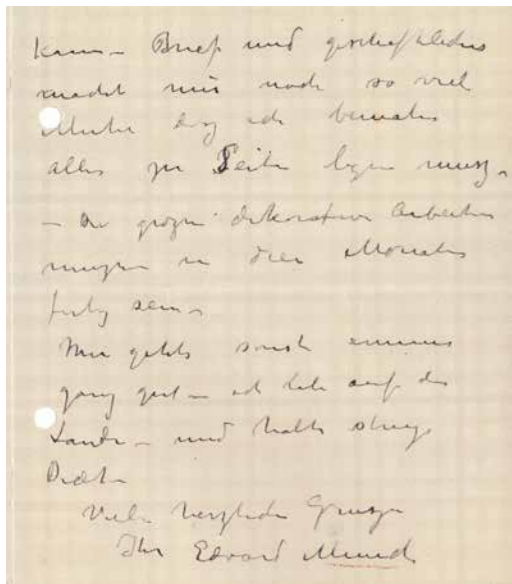 kann – Brief und geschäftliches
macht mir noch so viel
Mühe das ich beinahe
alles zu Seite legen musz –
– Die groszen dekorative Arbeiten
muszen in drei Monaten
fertig sein –
Mir gehts sonst
ganz gut – ich lebe auf des
Lande – und halte streng
Diæt –
Viele herzliche Grusze
Ihr Edvard Munch